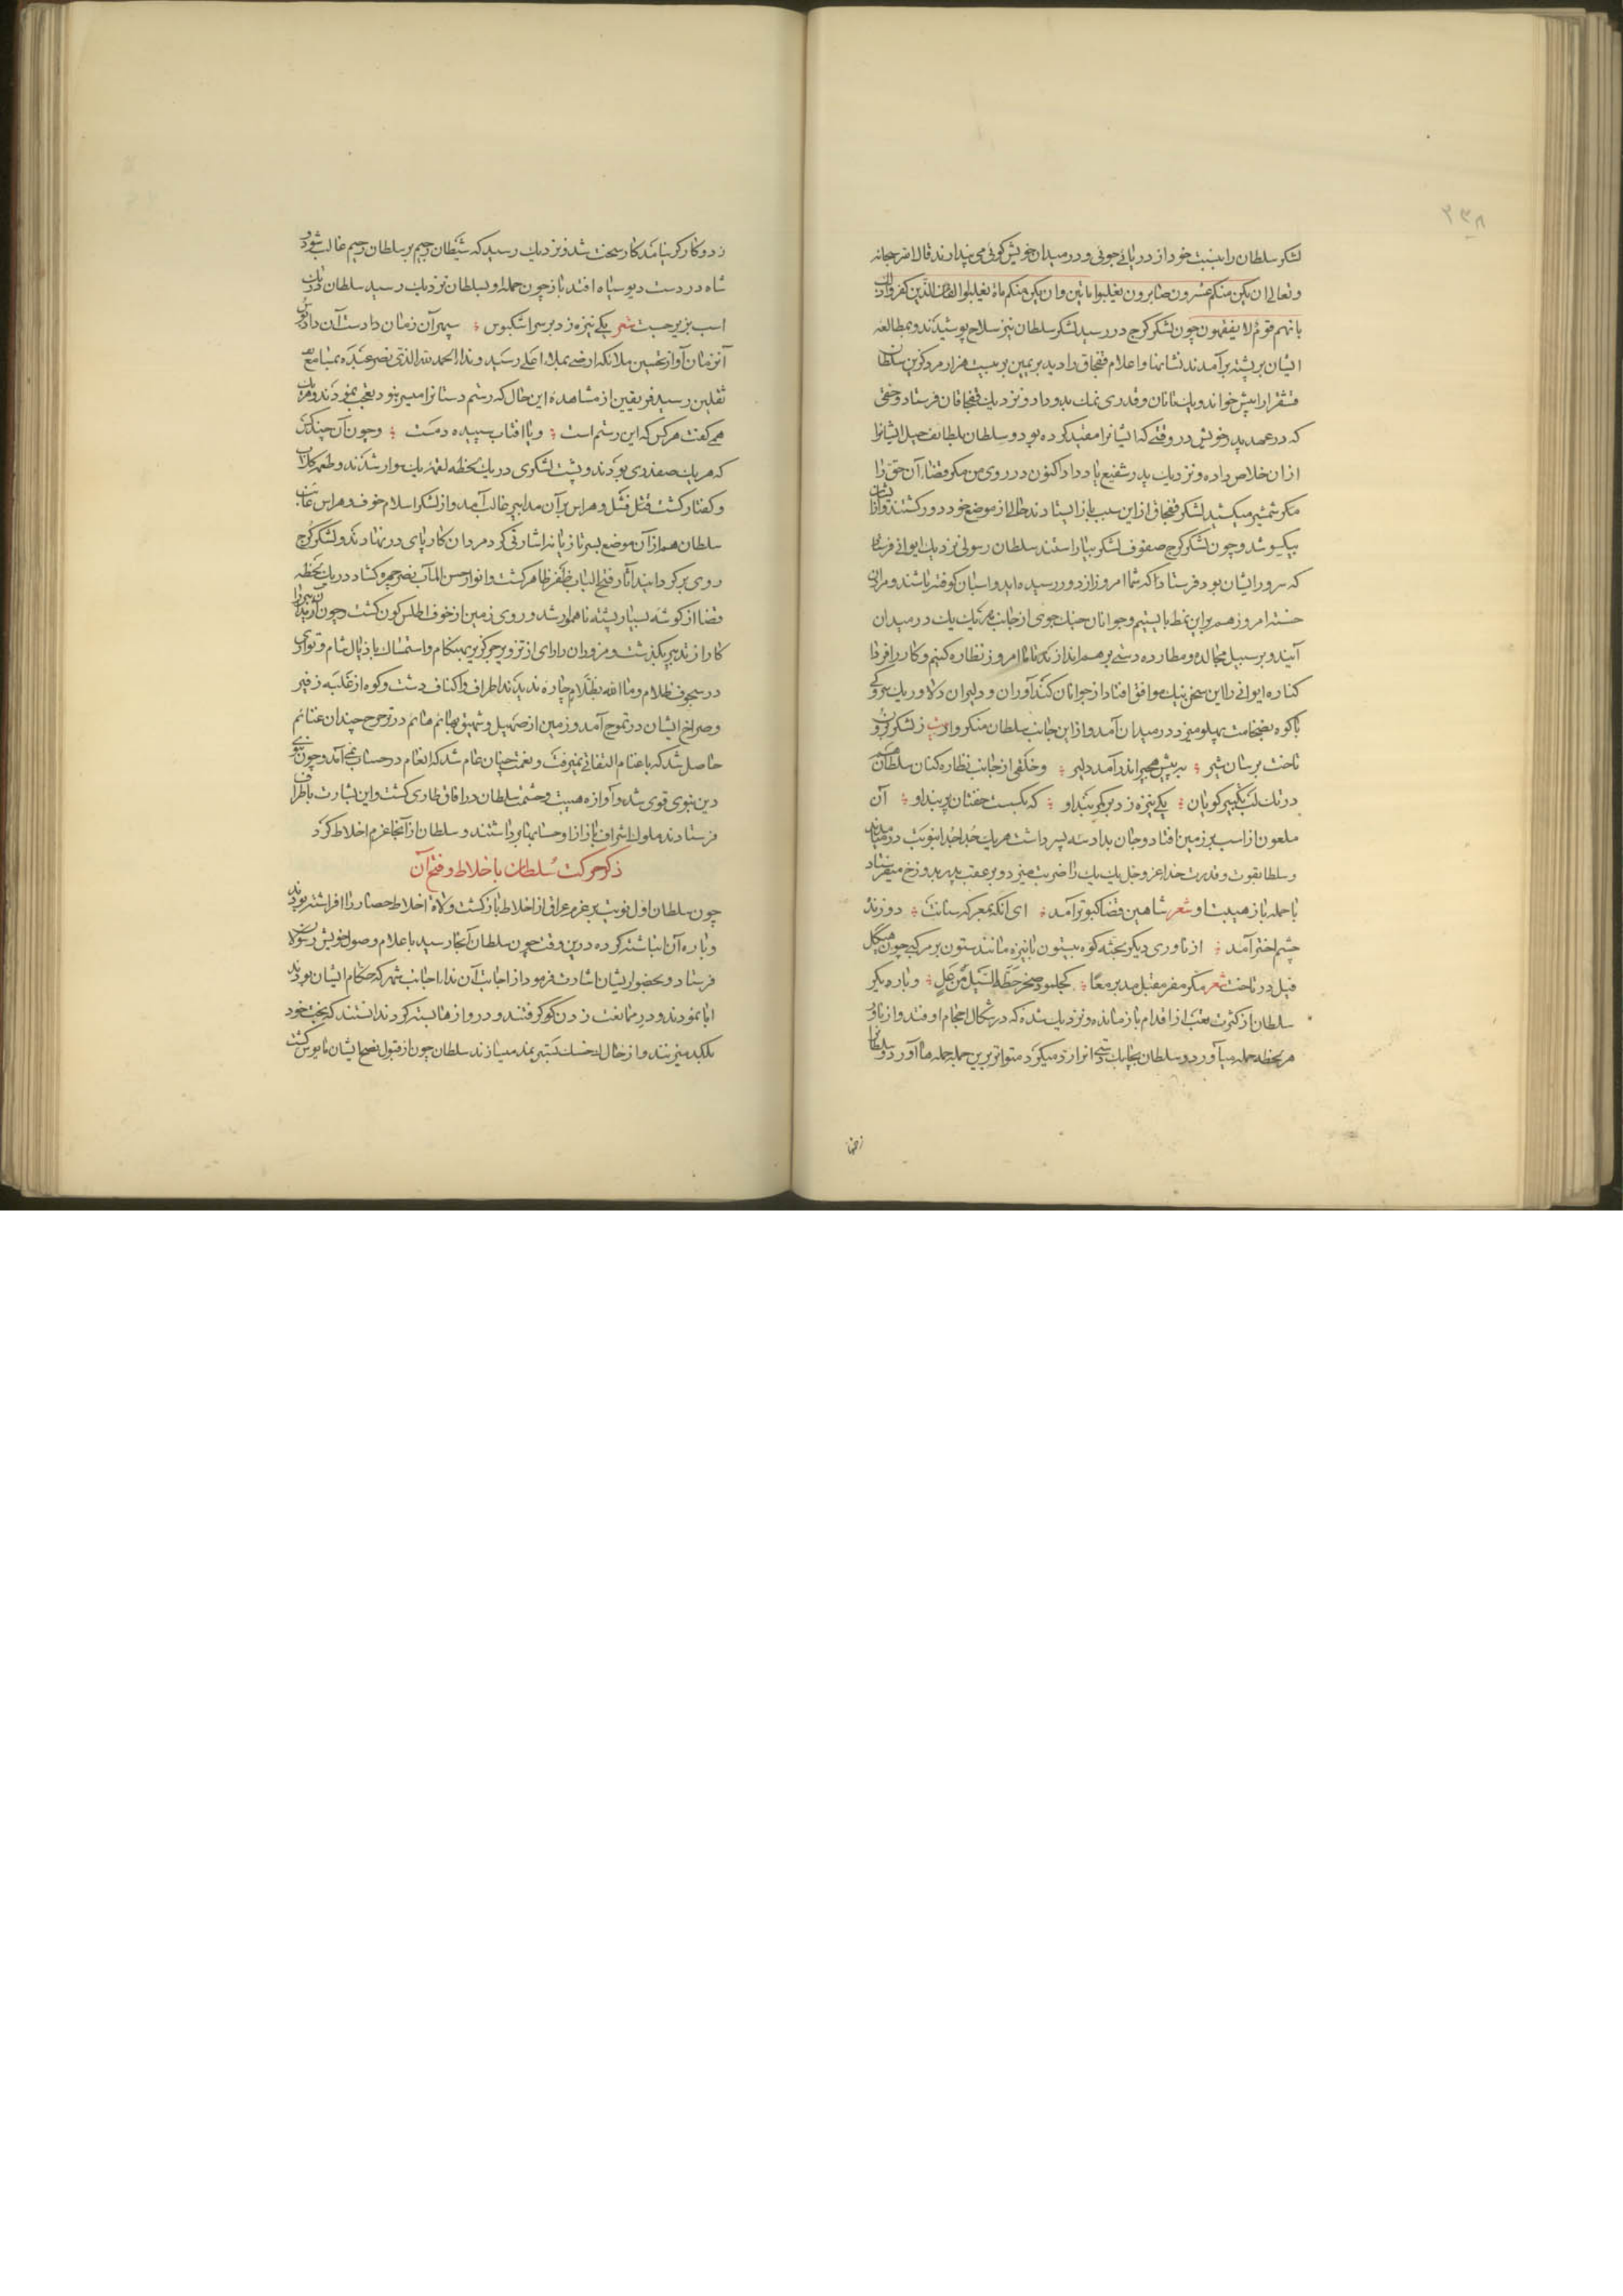 ۲۳۸
لشکر سلطان را بنسبت خود از دریائی جوئی و در میدان خویش گوئی می پندارند قال الله سبحانه
و تعالی ان یکن منکم عشرون صابرون یغلبوا مایتین وان یکن منکم مأة یغلبوا الفا من الذین کفروا
بانهم قوم لا یفقهون چون لشکر کرج در رسید لشکر سلطان نیز سلاح پوشیدند و بمطالعه
ایشان بر پشته برآمدند نشانها و اعلام قفجاق را دید بر یمین بر بیست هزار مرد گزین سلطان
قشقر را پیش خواند و یک تا نان و قدری نمک بدو داد و نزدیک قفجاقان فرستاد و حقی
که در عهد پدر خویش در وقتی که ایشانرا مقید کرده بود و سلطان بلطائف حیل ایشانرا
از ان خلاص داده و نزدیک پدر شفیع باد داد اکنون در روی من مکر قضاء آن حق را
مکر شمشیر میکشید لشکر قفجاق از این سبب باز ایستادند حالی از موضع خود دور گشتند و از
بیکسو شد و چون لشکر کرج صفوف لشکر بیاراستند سلطان رسولی نزدیک ایوانی فرستاد
که سرور ایشان بود فرستاد که شما امروز از دور رسیده اید و اسبان کوفته باشند و مردان
خسته امروز هم بر این نمط بایستیم و جوانان جنک جوی از جانبین یک یک در میدان
آیند و بر سبیل مجالده و مطارده دستی بر هم اندازند تا ما امروز نظاره کنیم و کار را فردا
کناره ایوانی را این سخن نیک موافق افتاد از جوانان کندآوران و دلیران دلاور یک
با کوه بضخامت پهلو میزد در میدان آمد و از این جانب سلطان منکروار بیت ز لشکر برون
تاخت برسان شیر ؛ به پیش هجیر اندر آمد دلیر ؛ و خلقی از جانب نظاره کنان سلطان
در تک تکبیر کویان ؛ یکی نیزه زد بر کمربند او ؛ که بگسست خفتان و پیوند او ؛ آن
ملعون از اسب بر زمین افتاد و جان بداد سه پسر داشت هر یک جدا جدا بنوبت در میدان
و سلطان بقوت و قدرت خدا عز و جل یک یک را ضربت میزد و بر عقب پدر بدوزخ میفرستاد
با حمله باز هیبت او شعر شاهین قضا کبوتر آمد ؛ ای آنکه بمعرکه سنانت ؛ دوزنده
چشم اختر آمد ؛ از ناوری دیگر بجثه کوه بیستون با نیزه مانند ستون بر مرکبی چون هیکل
فیل در تاخت شعر مکر مفر مقبل مدبر معا ؛ کجلمود صخر حطه السیل من عل ؛ و باره دیگر
سلطان از کثرت تعب از اقدام بازمانده و نزدیک شده که در شکال احجام اوفتد و از ناور
هر لحظه حمله میآورد و سلطان بچابک دستی آنرا رد میکرد متواتر برین جمله حمله ها آورد و سلطان
زخمها
زد و کارگر نیامد کار سخت شد و نزدیک رسید که شیطان رجیم بر سلطان رحیم غالب شود و
شاه در دست دیو سیاه افتد باز چون حمله او بسلطان نزدیک رسید سلطان
اسب بزیر جست شعر یکی نیزه زد بر سر اشکبوس ؛ سپهر آن زمان دادست آن داد بوس
آنزمان آواز تحسین ملائکه ارضی بملاء اعلی رسید و ندا الحمد لله الذی نصر عبده بمسامع
ثقلین رسید فریقین از مشاهده این حال که رستم دستانرا میسر نبود تعجب نمودند و هر یک
همی گفت هر کس که این رستم است ؛ و یا افتاب سپیده دمست ؛ و چون آن چند کس
که هر یک صفدری بودند و پشت لشکری در یک لحظه لقمه یک سوار شدند و طعمه کلاب
و کفتار گشت قتل فشل و هراس بر آن مدابیر غالب آمد و از لشکر اسلام خوف و هراس غائب
سلطان هم از آن موضع بسر تازیانه اشارتی کرد مردان کار پای در نهادند و لشکر کرج
روی برگردانید آثار فتح الباب ظفر ظاهر گشت و انوار حسن المآب نصر چهره گشاد در یک لحظه
فضا از گوشه بسیار پشته ناهموار شد و روی زمین از خوف اطلس کون گشت و چون
کار از تدبیر بگذشت و مزوران را رای از تزویر جز گریز بهنگام و استمساک باذیال شام و تواری
در سجوف ظلام و ما الله بظلام چاره ندیدند اطراف و اکناف دشت و کوه از غلبه زفیر
و صراخ ایشان در تموج آمد و زمین از صهیل و شهیق بهائم هائم در ترجرج چندان غنائم
حاصل شد که باغنام التفاتی نمیرفت و نعمت چنان عام شد که انعام در حساب نمی آمد و چون
دین نبوی قوی شد و آوازه هیبت و حشمت سلطان در افاق طاری گشت و این بشارت باطراف
فرستادند ملوک اشراف باز از او حسابها برداشتند و سلطان از آنجا عزم اخلاط کرد
ذکر حرکت سلطان باخلاط و فتح آن
چون سلطان اول نوبت بر عزم عراق از اخلاط بازگشت ولاة اخلاط حصار را افراشته بودند
و باره آن انباشته کرده درین وقت چون سلطان آنجا رسید باعلام وصول خویش رسولان
فرستاد و بحضور ایشان اشارت فرمود از اجابت آن ندا اجانب شهر که حکام ایشان بودند
ابا نمودند و در ممانعت زدن کوکر فتند و دروازها بسته کردند ندانستند که بخت خود
بلکد میزنند و از خاک بی خسک بستر نهند میسازند سلطان چون از قبول نصح ایشان مایوس گشت